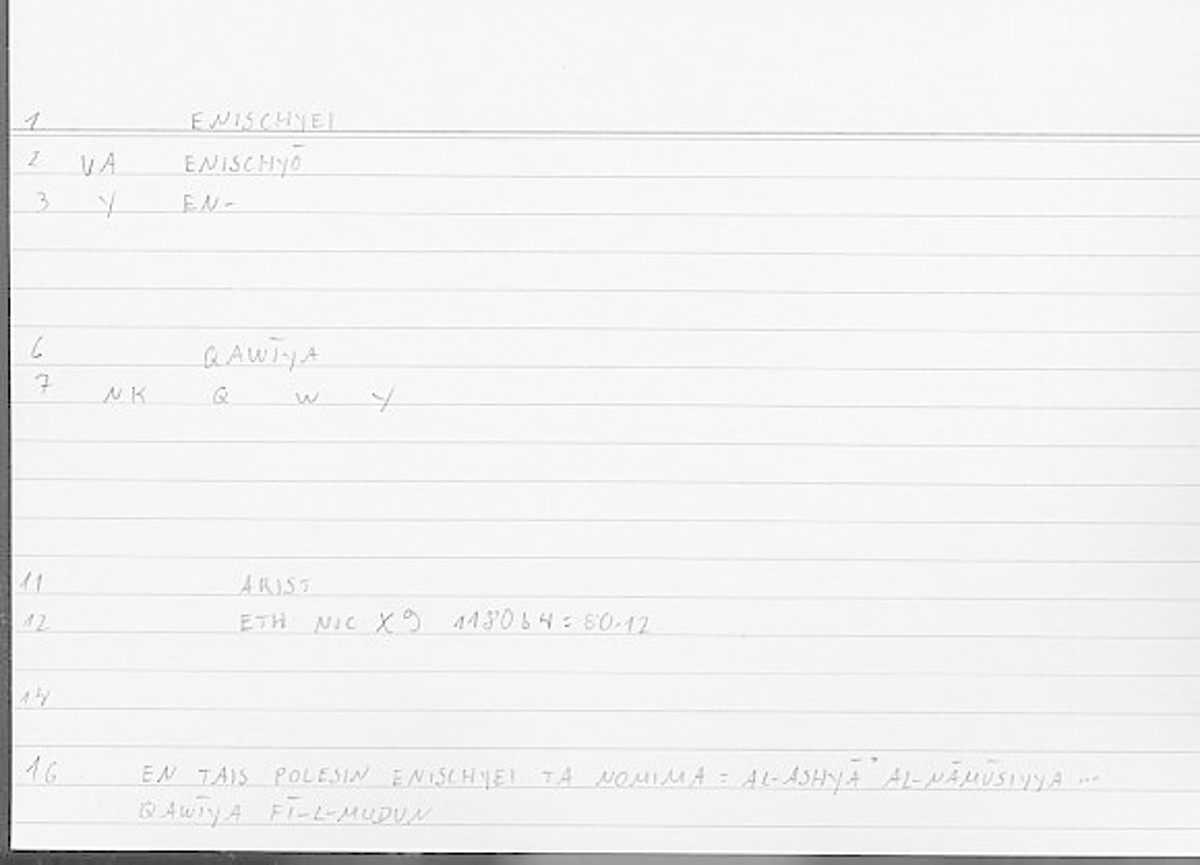 1 ENISCHYEI
2 VA ENISCHYŌ
3 Y EN-
6 QAWĪYA
7 NK Q W Y
11 ARIST
12 ETH NIC X 9 1180b4 = 80.12
14
16 EN TAIS POLESIN ENISCHYEI TA NOMIMA = AL-ASHYĀʾ AL-NĀMŪSIYYA ...
QAWĪYA FĪ-L-MUDUN